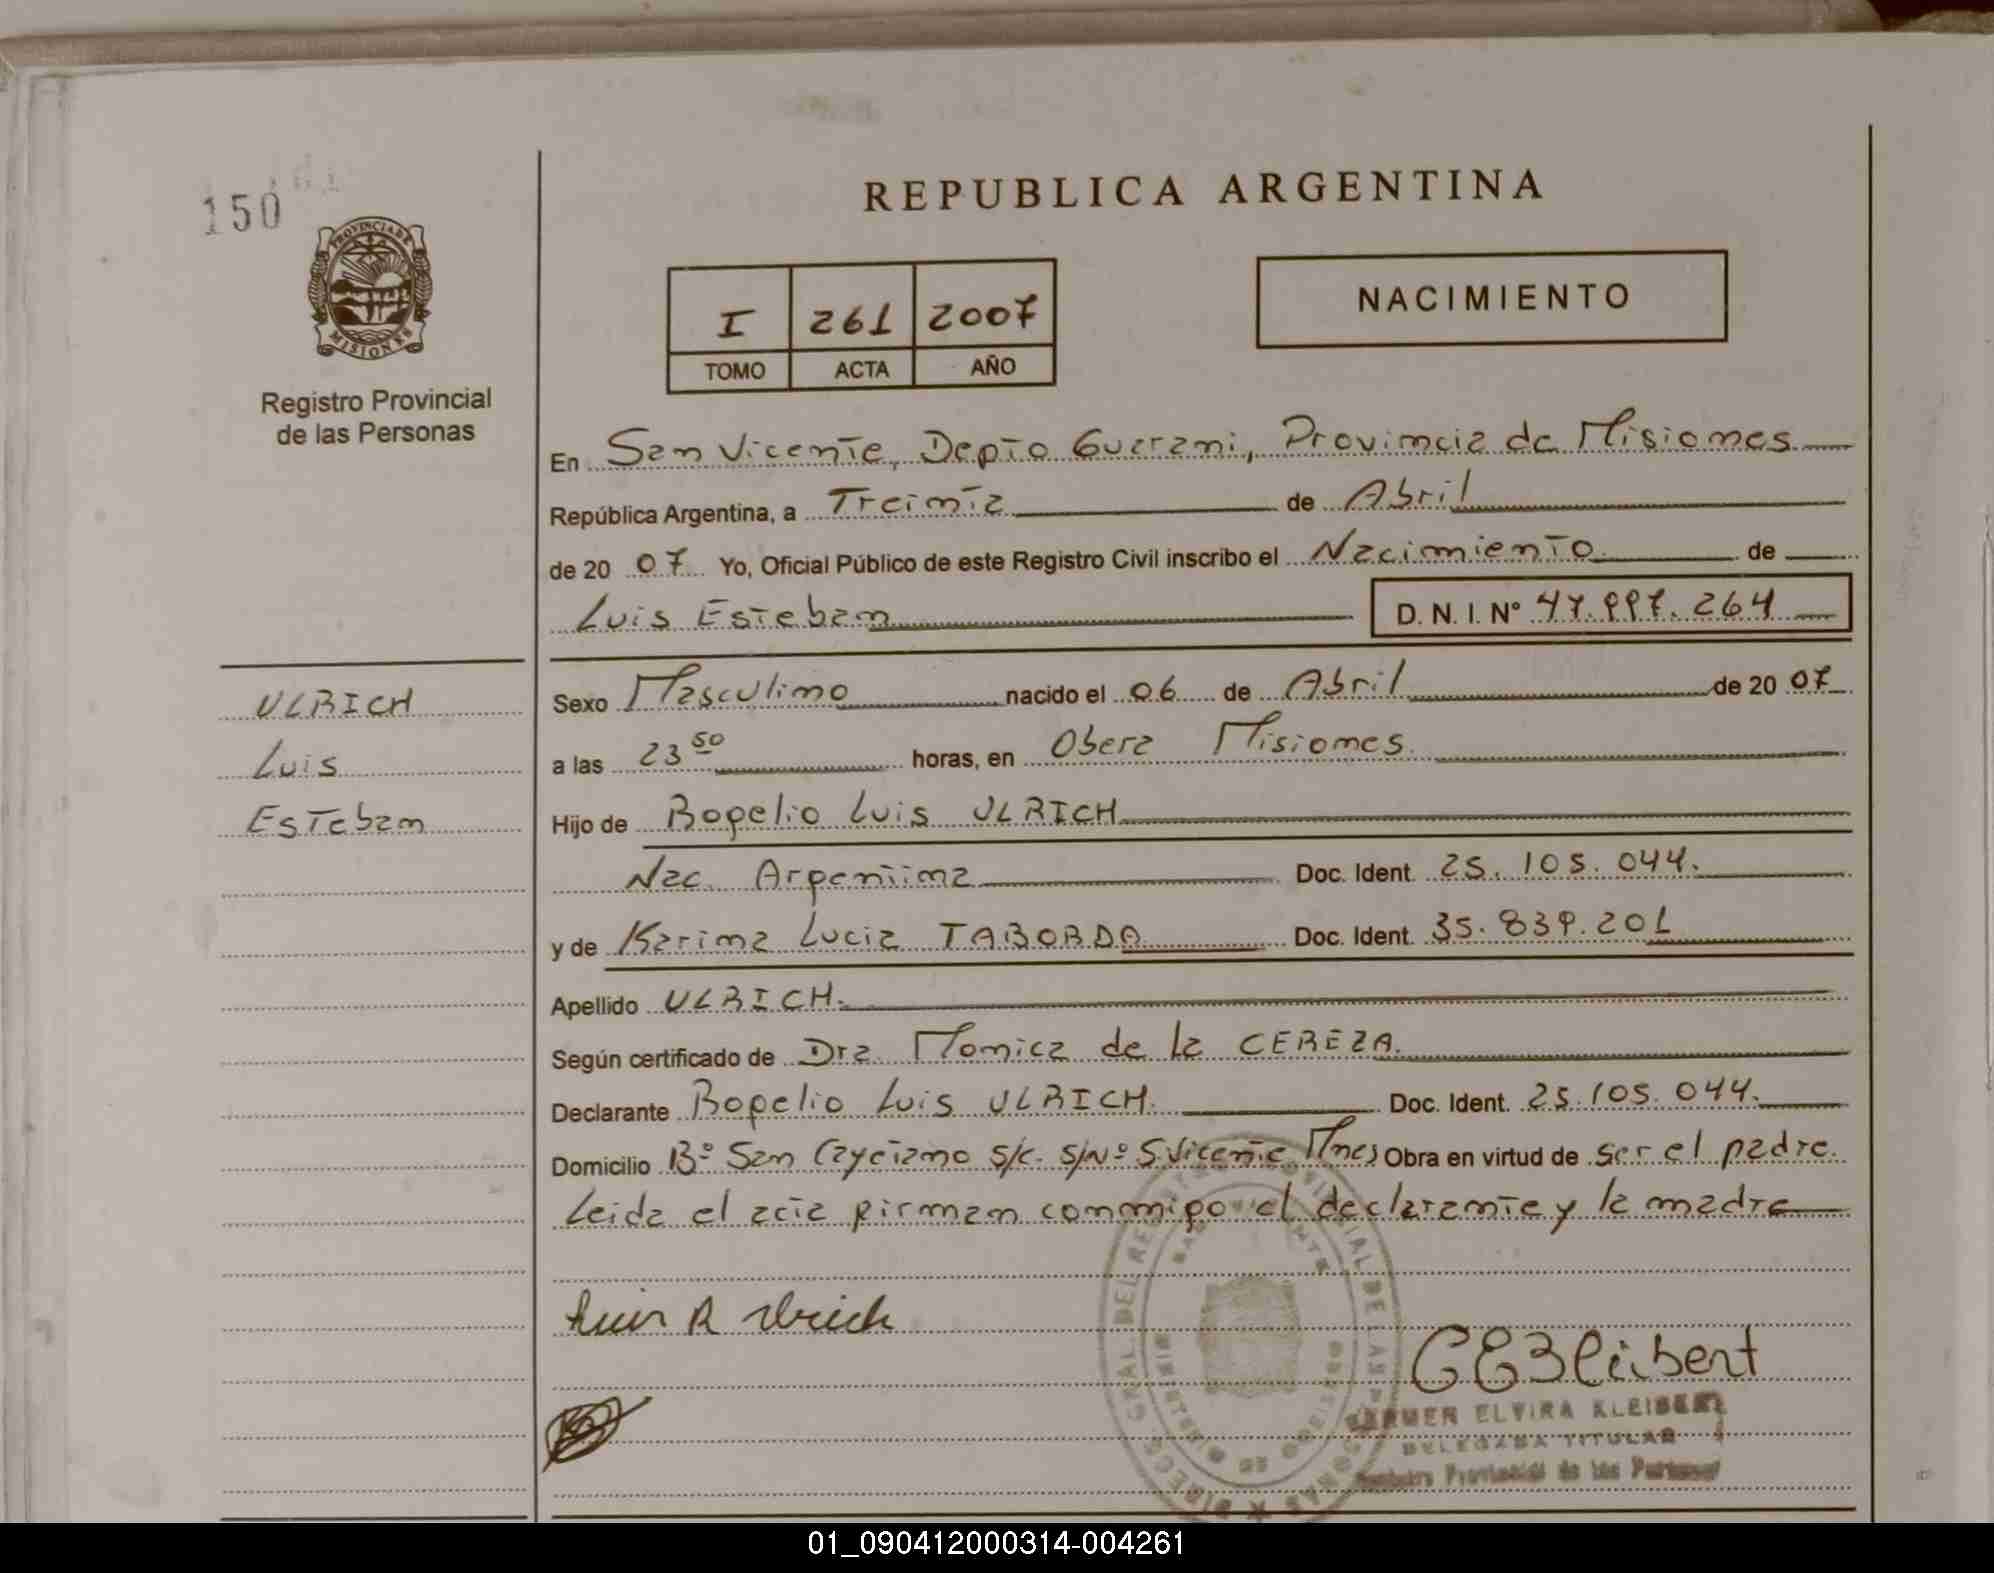 150
PROVINCIA DE
MISIONES
Registro Provincial
de las Personas
REPUBLICA ARGENTINA
I 261 2007
TOMO ACTA AÑO
NACIMIENTO
En San Vicente, Depto Guarani, Provincia de Misiones
República Argentina, a Treinta de Abril
de 20 07 Yo, Oficial Público de este Registro Civil inscribo el Nacimiento de
Luis Esteban D. N. I. Nº 47.997.264
ULRICH
Luis
Esteban
Sexo Masculino nacido el 06 de Abril de 20 07
a las 23 50 horas, en Obera Misiones.
Hijo de Rogelio Luis ULRICH
Nac. Argentina Doc. Ident. 25.105.044.
y de Karina Lucia TABORDA Doc. Ident. 35.839.201
Apellido ULRICH.
Según certificado de Dra Monica de la CEREZA.
Declarante Rogelio Luis ULRICH. Doc. Ident. 25.105.044.
Domicilio Bº San Cayetano S/C. S/Nº S.Vicente Mnes Obra en virtud de ser el padre.
Leida el acta firman conmigo el declarante y la madre
Luis R Ulrich
CEKleibert
CARMEN ELVIRA KLEIBERT
DELEGADA TITULAR
Registro Provincial de las Personas
01_090412000314-004261